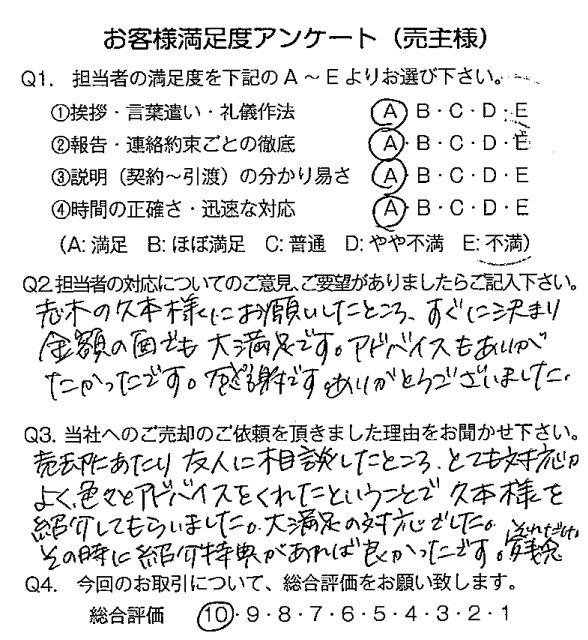 お客様満足度アンケート（売主様）
Q1. 担当者の満足度を下記のA～Eよりお選び下さい。
①挨拶・言葉遣い・礼儀作法 A・B・C・D・E
②報告・連絡約束ごとの徹底 A・B・C・D・E
③説明（契約～引渡）の分かり易さ A・B・C・D・E
④時間の正確さ・迅速な対応 A・B・C・D・E
（A:満足 B:ほぼ満足 C:普通 D:やや不満 E:不満）
Q2.担当者の対応についてのご意見、ご要望がありましたらご記入下さい。
志木の久本様にお願いしたところ、すぐに決まり
金額の面でも大満足です。アドバイスもありが
たかったです。感謝です。ありがとうございました。
Q3. 当社へのご売却のご依頼を頂きました理由をお聞かせ下さい。
売却にあたり友人に相談したところ、とても対応が
よく、色々とアドバイスをくれたということで久本様を
紹介してもらいました。大満足の対応でした。
その時に紹介特典があれば良かったです。それだけが残念
Q4. 今回のお取引について、総合評価をお願い致します。
総合評価 10・9・8・7・6・5・4・3・2・1